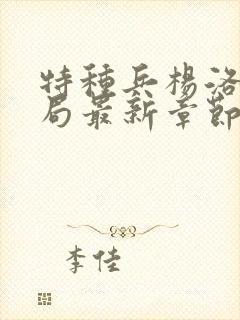 特種兵楊洛
局最新章節
李佳